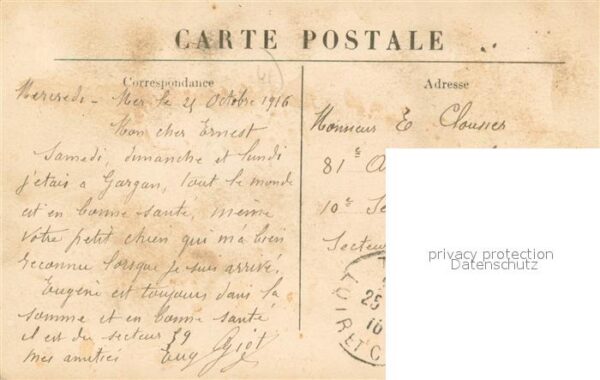 CARTE POSTALE
Correspondance
Adresse
Mercredi - Mer le 25 Octobre 1916
Mon cher Ernest
Samedi, dimanche et lundi
j'etais a Gargan, tout le monde
est en bonne sante, meme
votre petit chien qui m'a bien
reconnu lorsque je suis arrivé.
Eugène est toujours dans la
somme et en bonne santé
il est du secteur 39
mes amitiés Eug Giot
Monsieur E Clousier
81e A
10e
Secteu
privacy protection
Datenschutz
25
LOIR ET C